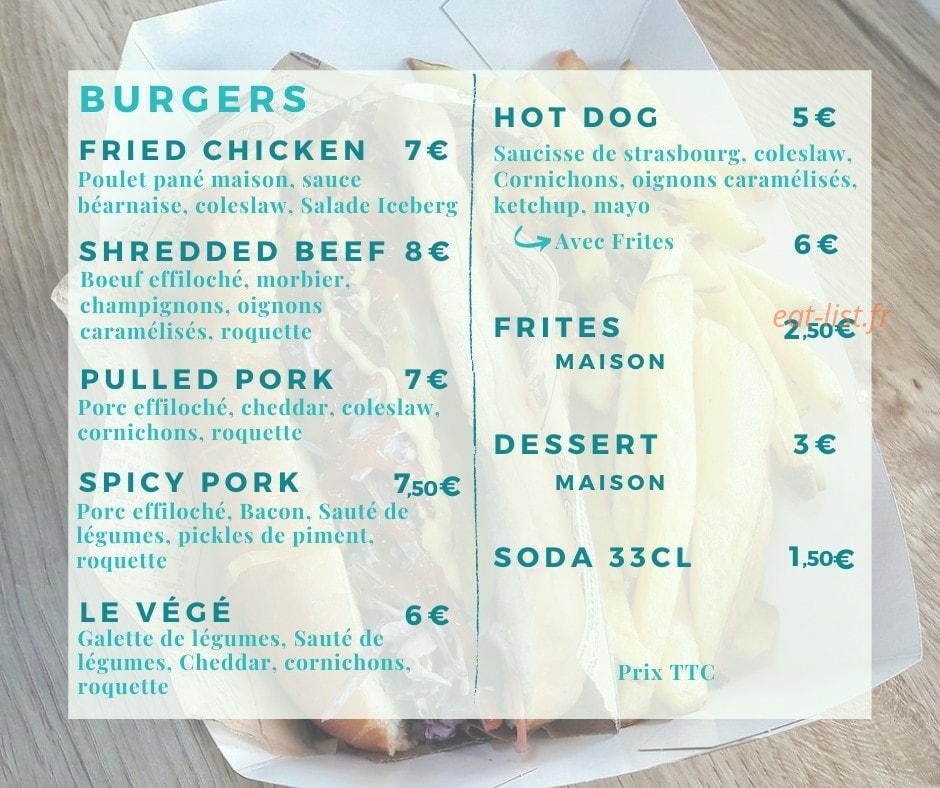 BURGERS
FRIED CHICKEN 7€
Poulet pané maison, sauce
béarnaise, coleslaw, Salade Iceberg
SHREDDED BEEF 8€
Boeuf effiloché, morbier,
champignons, oignons
caramélisés, roquette
PULLED PORK 7€
Porc effiloché, cheddar, coleslaw,
cornichons, roquette
SPICY PORK 7,50€
Porc effiloché, Bacon, Sauté de
légumes, pickles de piment,
roquette
LE VÉGÉ 6€
Galette de légumes, Sauté de
légumes, Cheddar, cornichons,
roquette
HOT DOG 5€
Saucisse de strasbourg, coleslaw,
Cornichons, oignons caramélisés,
ketchup, mayo
Avec Frites 6€
eat-list.fr
FRITES 2,50€
MAISON
DESSERT 3€
MAISON
SODA 33CL 1,50€
Prix TTC